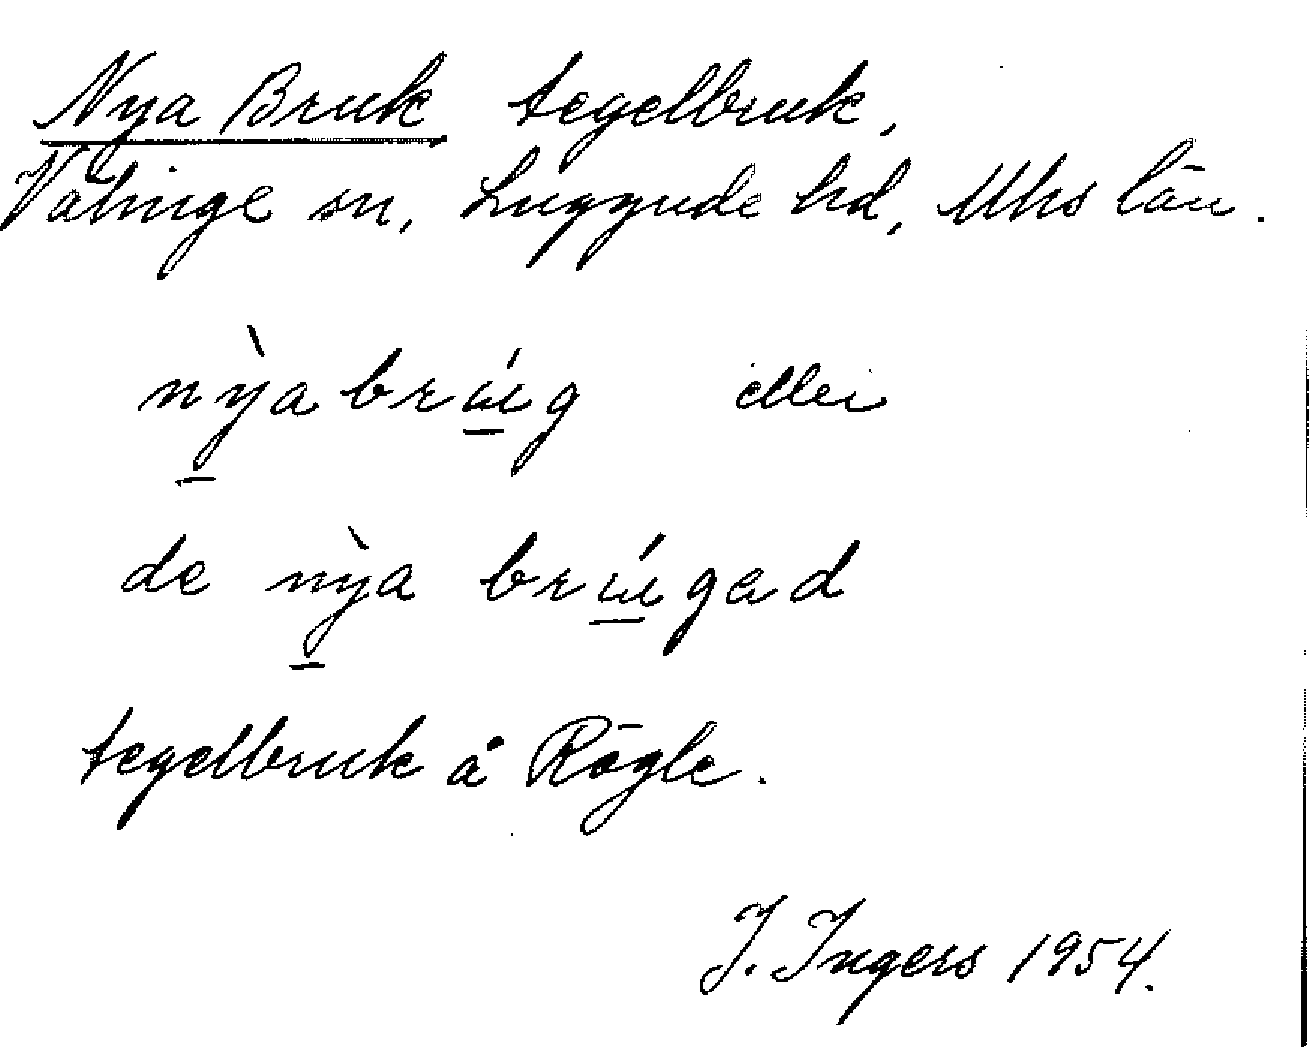 Nya Bruk tegelbruk,
Välinge sn, Luggude hd, Mhs län.
nỳabrúg eller
de nỳa brúgad
tegelbruk å Rögle.
J. Ingers 1954.